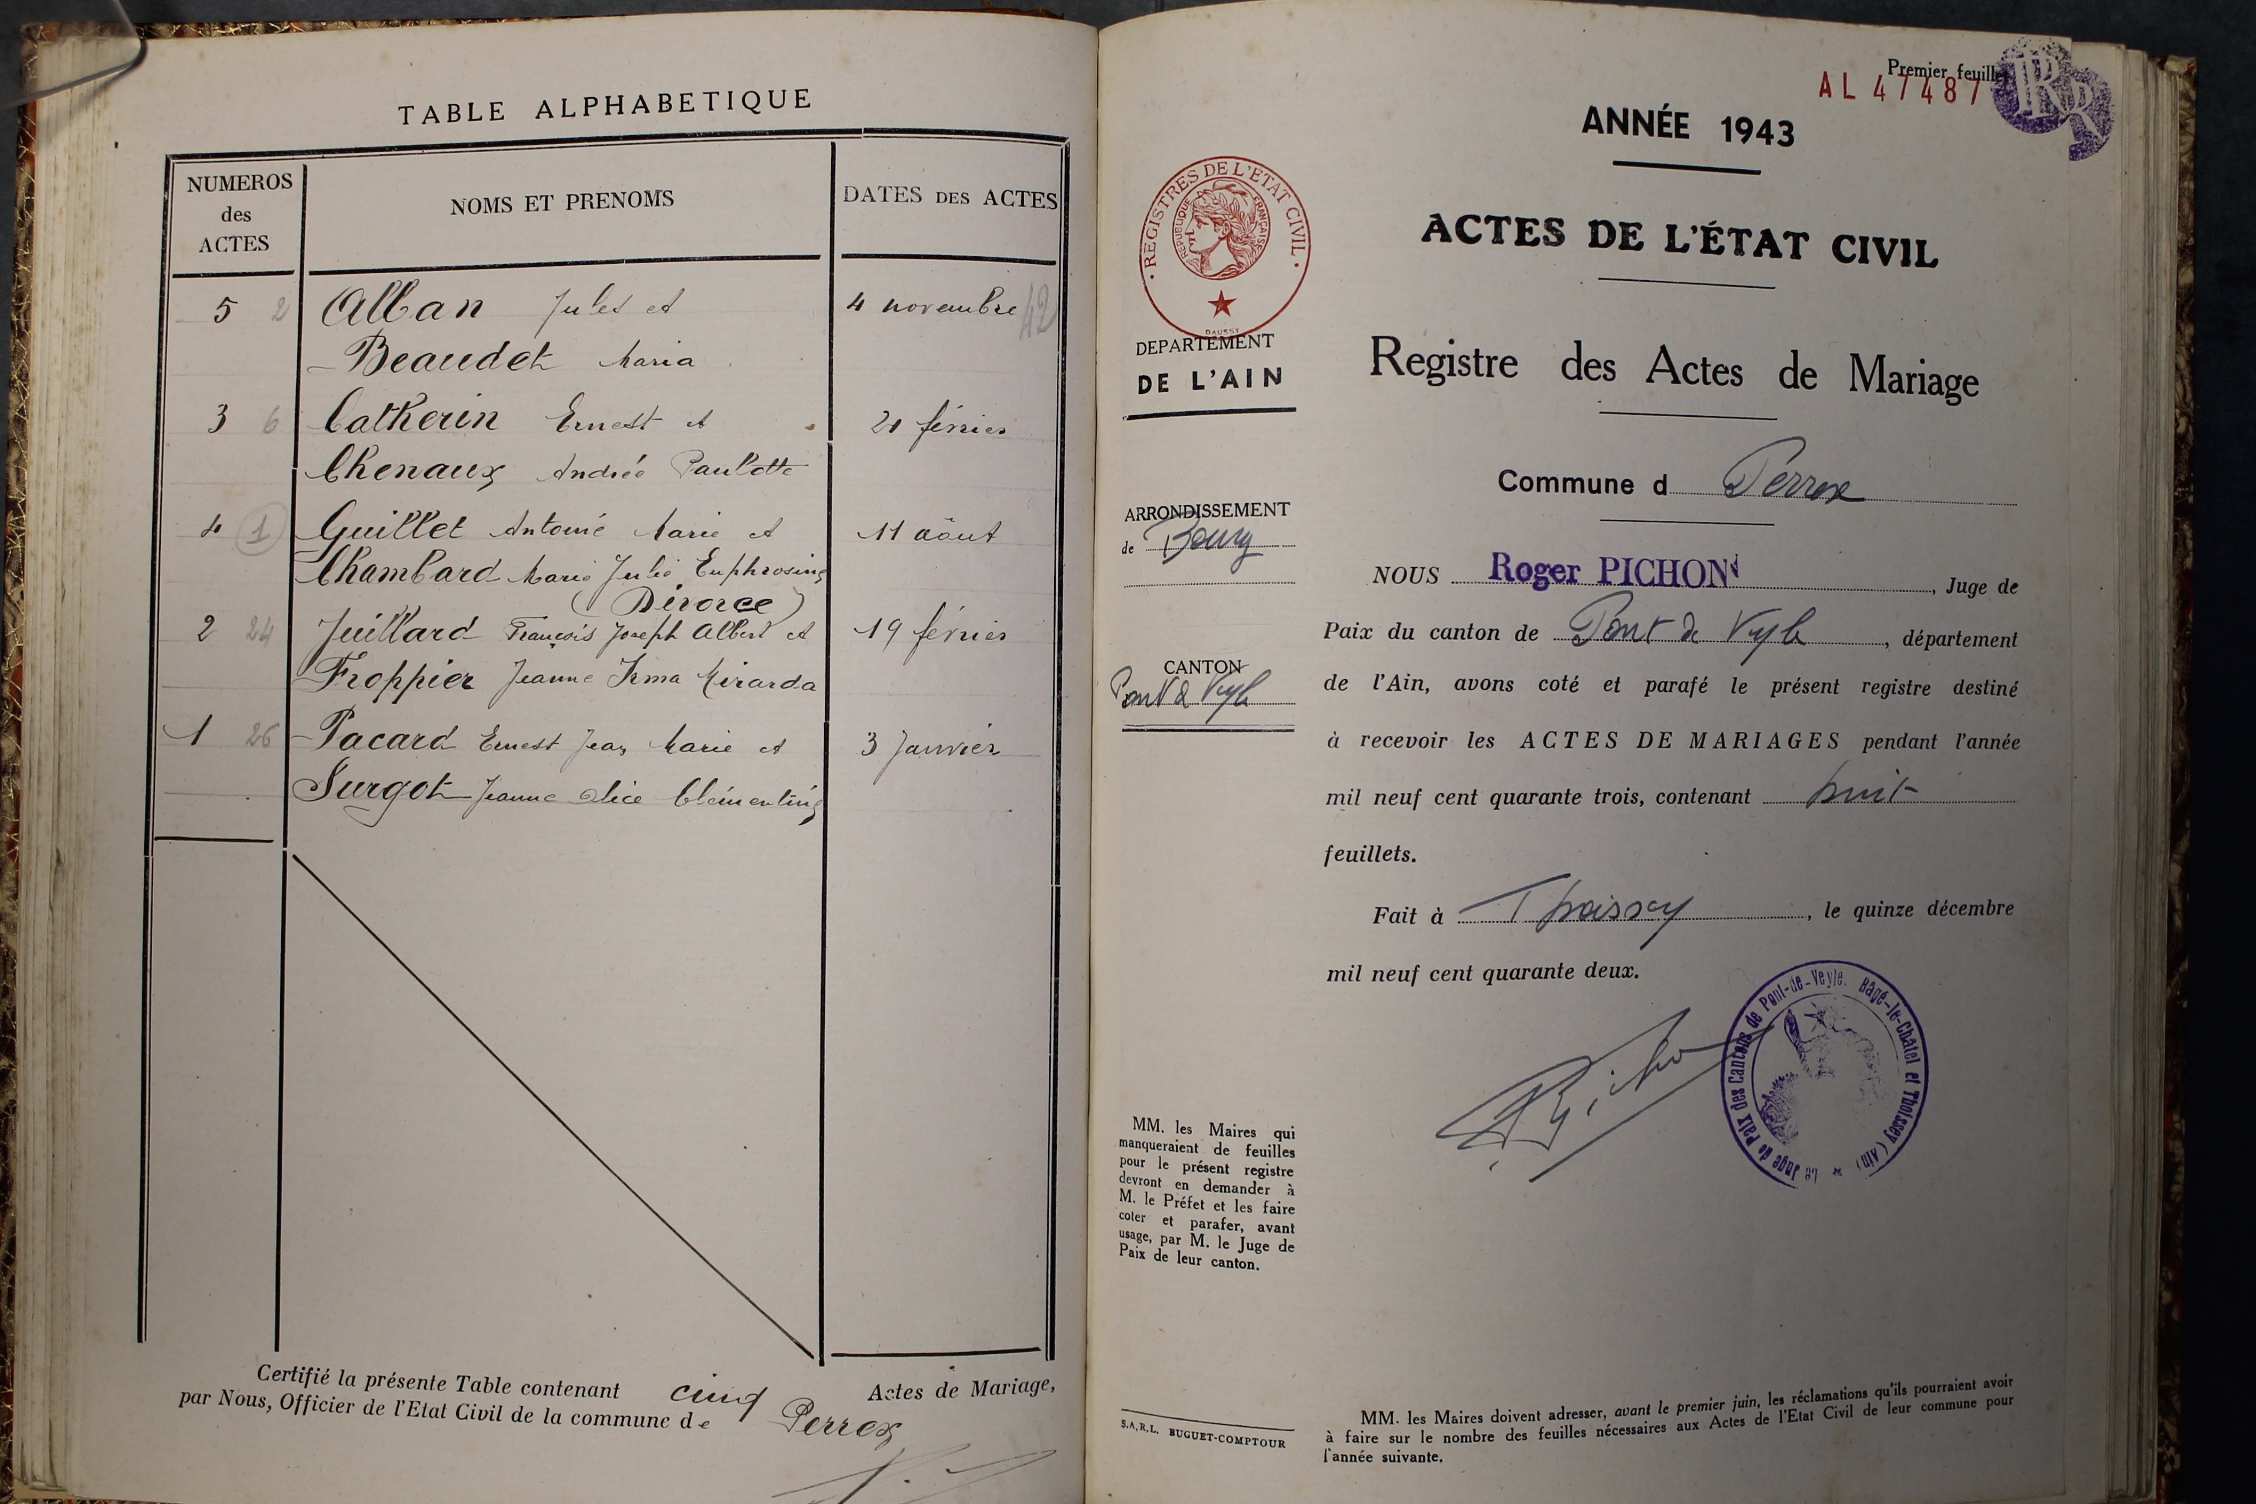 TABLE ALPHABETIQUE
NUMEROS
des
ACTES
NOMS ET PRENOMS
DATES DES ACTES
5 2 Alban Jules et 4 novembre 42
Beaudet Maria
3 6 Catherin Ernest et 20 février
Chenaux Andrée Paulette
4 1 Guillet Antoine Marie et 11 aôut
Chambard Marie Julie Euphrosine
(Divorce)
2 24 Juillard François Joseph Albert et 19 février
Froppier Jeanne Irma Miranda
1 26 Pacard Ernest Jean Marie et 3 Janvier
Surgot Jeanne Alice Clémentine
Certifié la présente Table contenant cinq Actes de Mariage,
par Nous, Officier de l'Etat Civil de la commune de Perrex
Premier feuillet
AL 47487
ANNÉE 1943
· REGISTRES DE L'ETAT CIVIL ·
REPUBLIQUE FRANÇAISE
DAUSSY
ACTES DE L'ÉTAT CIVIL
DEPARTEMENT
DE L'AIN
Registre des Actes de Mariage
Commune d Perrex
ARRONDISSEMENT
de Bourg
NOUS Roger PICHON, Juge de
Paix du canton de Pont de Veyle, département
CANTON
Pont de Veyle
de l'Ain, avons coté et parafé le présent registre destiné
à recevoir les ACTES DE MARIAGES pendant l'année
mil neuf cent quarante trois, contenant huit
feuillets.
Fait à Thoissey, le quinze décembre
mil neuf cent quarante deux.
Le Juge de Paix des Cantons de Pont-de-Veyle. Bâgé-le-Châtel et Thoissey (Ain)
MM. les Maires qui
manqueraient de feuilles
pour le présent registre
devront en demander à
M. le Préfet et les faire
coter et parafer, avant
usage, par M. le Juge de
Paix de leur canton.
S.A.R.L. BUGUET-COMPTOUR
MM. les Maires doivent adresser, avant le premier juin, les réclamations qu'ils pourraient avoir
à faire sur le nombre des feuilles nécessaires aux Actes de l'Etat Civil de leur commune pour
l'année suivante.